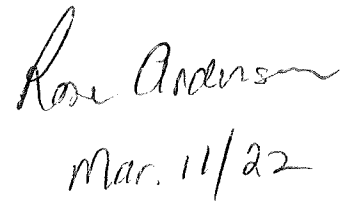 Rose Anderson
Mar. 11/22